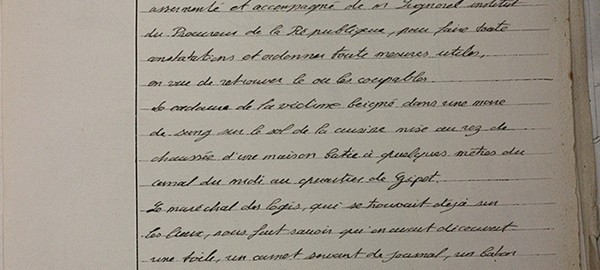 assermenté et accompagné de Mr Pignorel institut
du Procureur de la République, pour faire toute
constatations et ordonner toute mesures utiles,
en vue de retrouver le ou les coupables.
Le cadavre de la victime beigné dans une mare
de sang sur le sol de la cuisine mise au rez de
chaussée d'une maison batie à quelques mètres du
canal du midi au quartier de Gipot.
Le maréchal des logis, qui se trouvait déjà sur
les lieux, nous fait savoir qu'en avant découvert
une toile, un carnet servant de journal, un baton